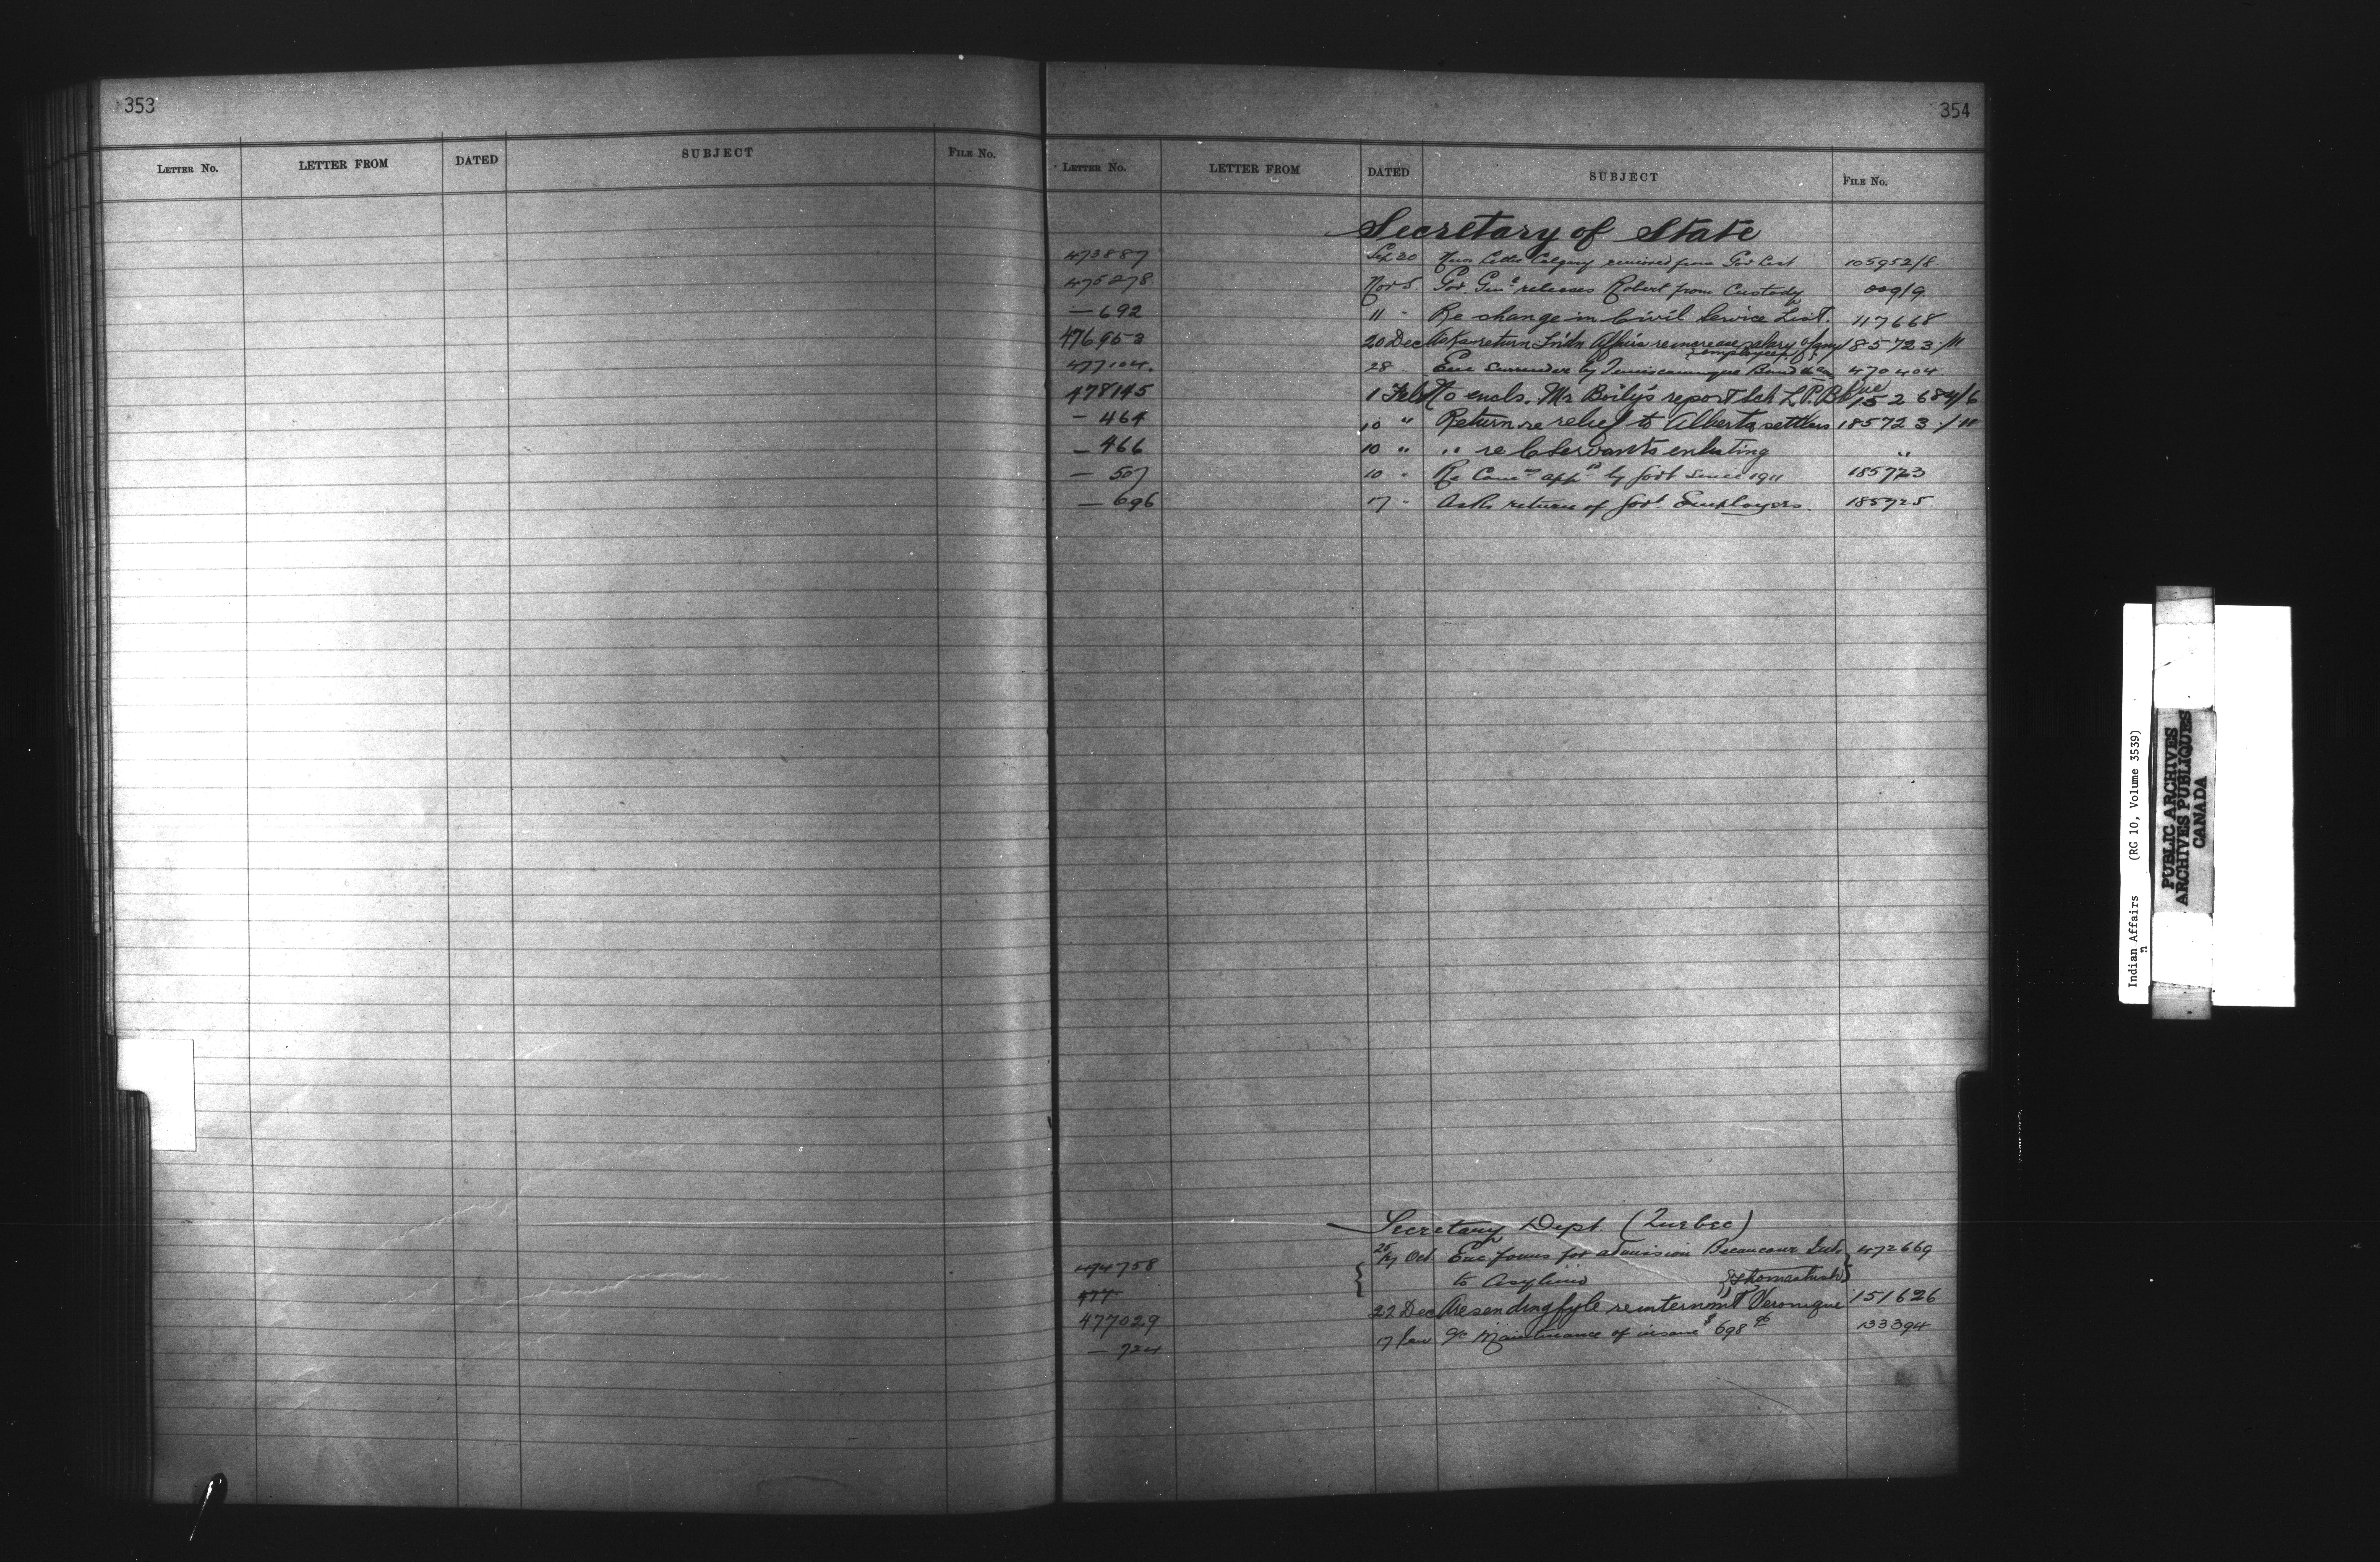 353
LETTER NO. LETTER FROM DATED SUBJECT FILE NO.
354
LETTER NO. LETTER FROM DATED SUBJECT FILE NO.
Secretary of State
473887 Sep 20 News Letter Calgary removed from Gov List 105952/8
475278 Nov 5 Gov. Genl releases Robert from Custody
— 692 11 " Re change in Civil Service List. 117668
476953 20 Dec Asks return Indn Affairs re increase salary of any 185723/11
employees
477104. 28 " Enc Surrender by Temiscamingue Band 470404
478145 1 Feb No encls. Mr Boily's report
— 464 10 " Return re relief to Alberta settlers 185723/11
— 466 10 " " re C Servants enlisting "
— 507 10 " Re Comrs appd by Govt since 1911 185723
— 696 17 " Asks return of Govt. Employees. 185725
Secretary Dept. (Quebec)
474758 25/27 Oct Enc forms for admission Becancour Inds 472669
to Asylum
477
477029 22 Dec Are sending fyle re internmt Veronique 151626
— 724 17 Jan Maintenance of insane $698 133394
Indian Affairs (RG 10, Volume 3539)
PUBLIC ARCHIVES
ARCHIVES PUBLIQUES
CANADA